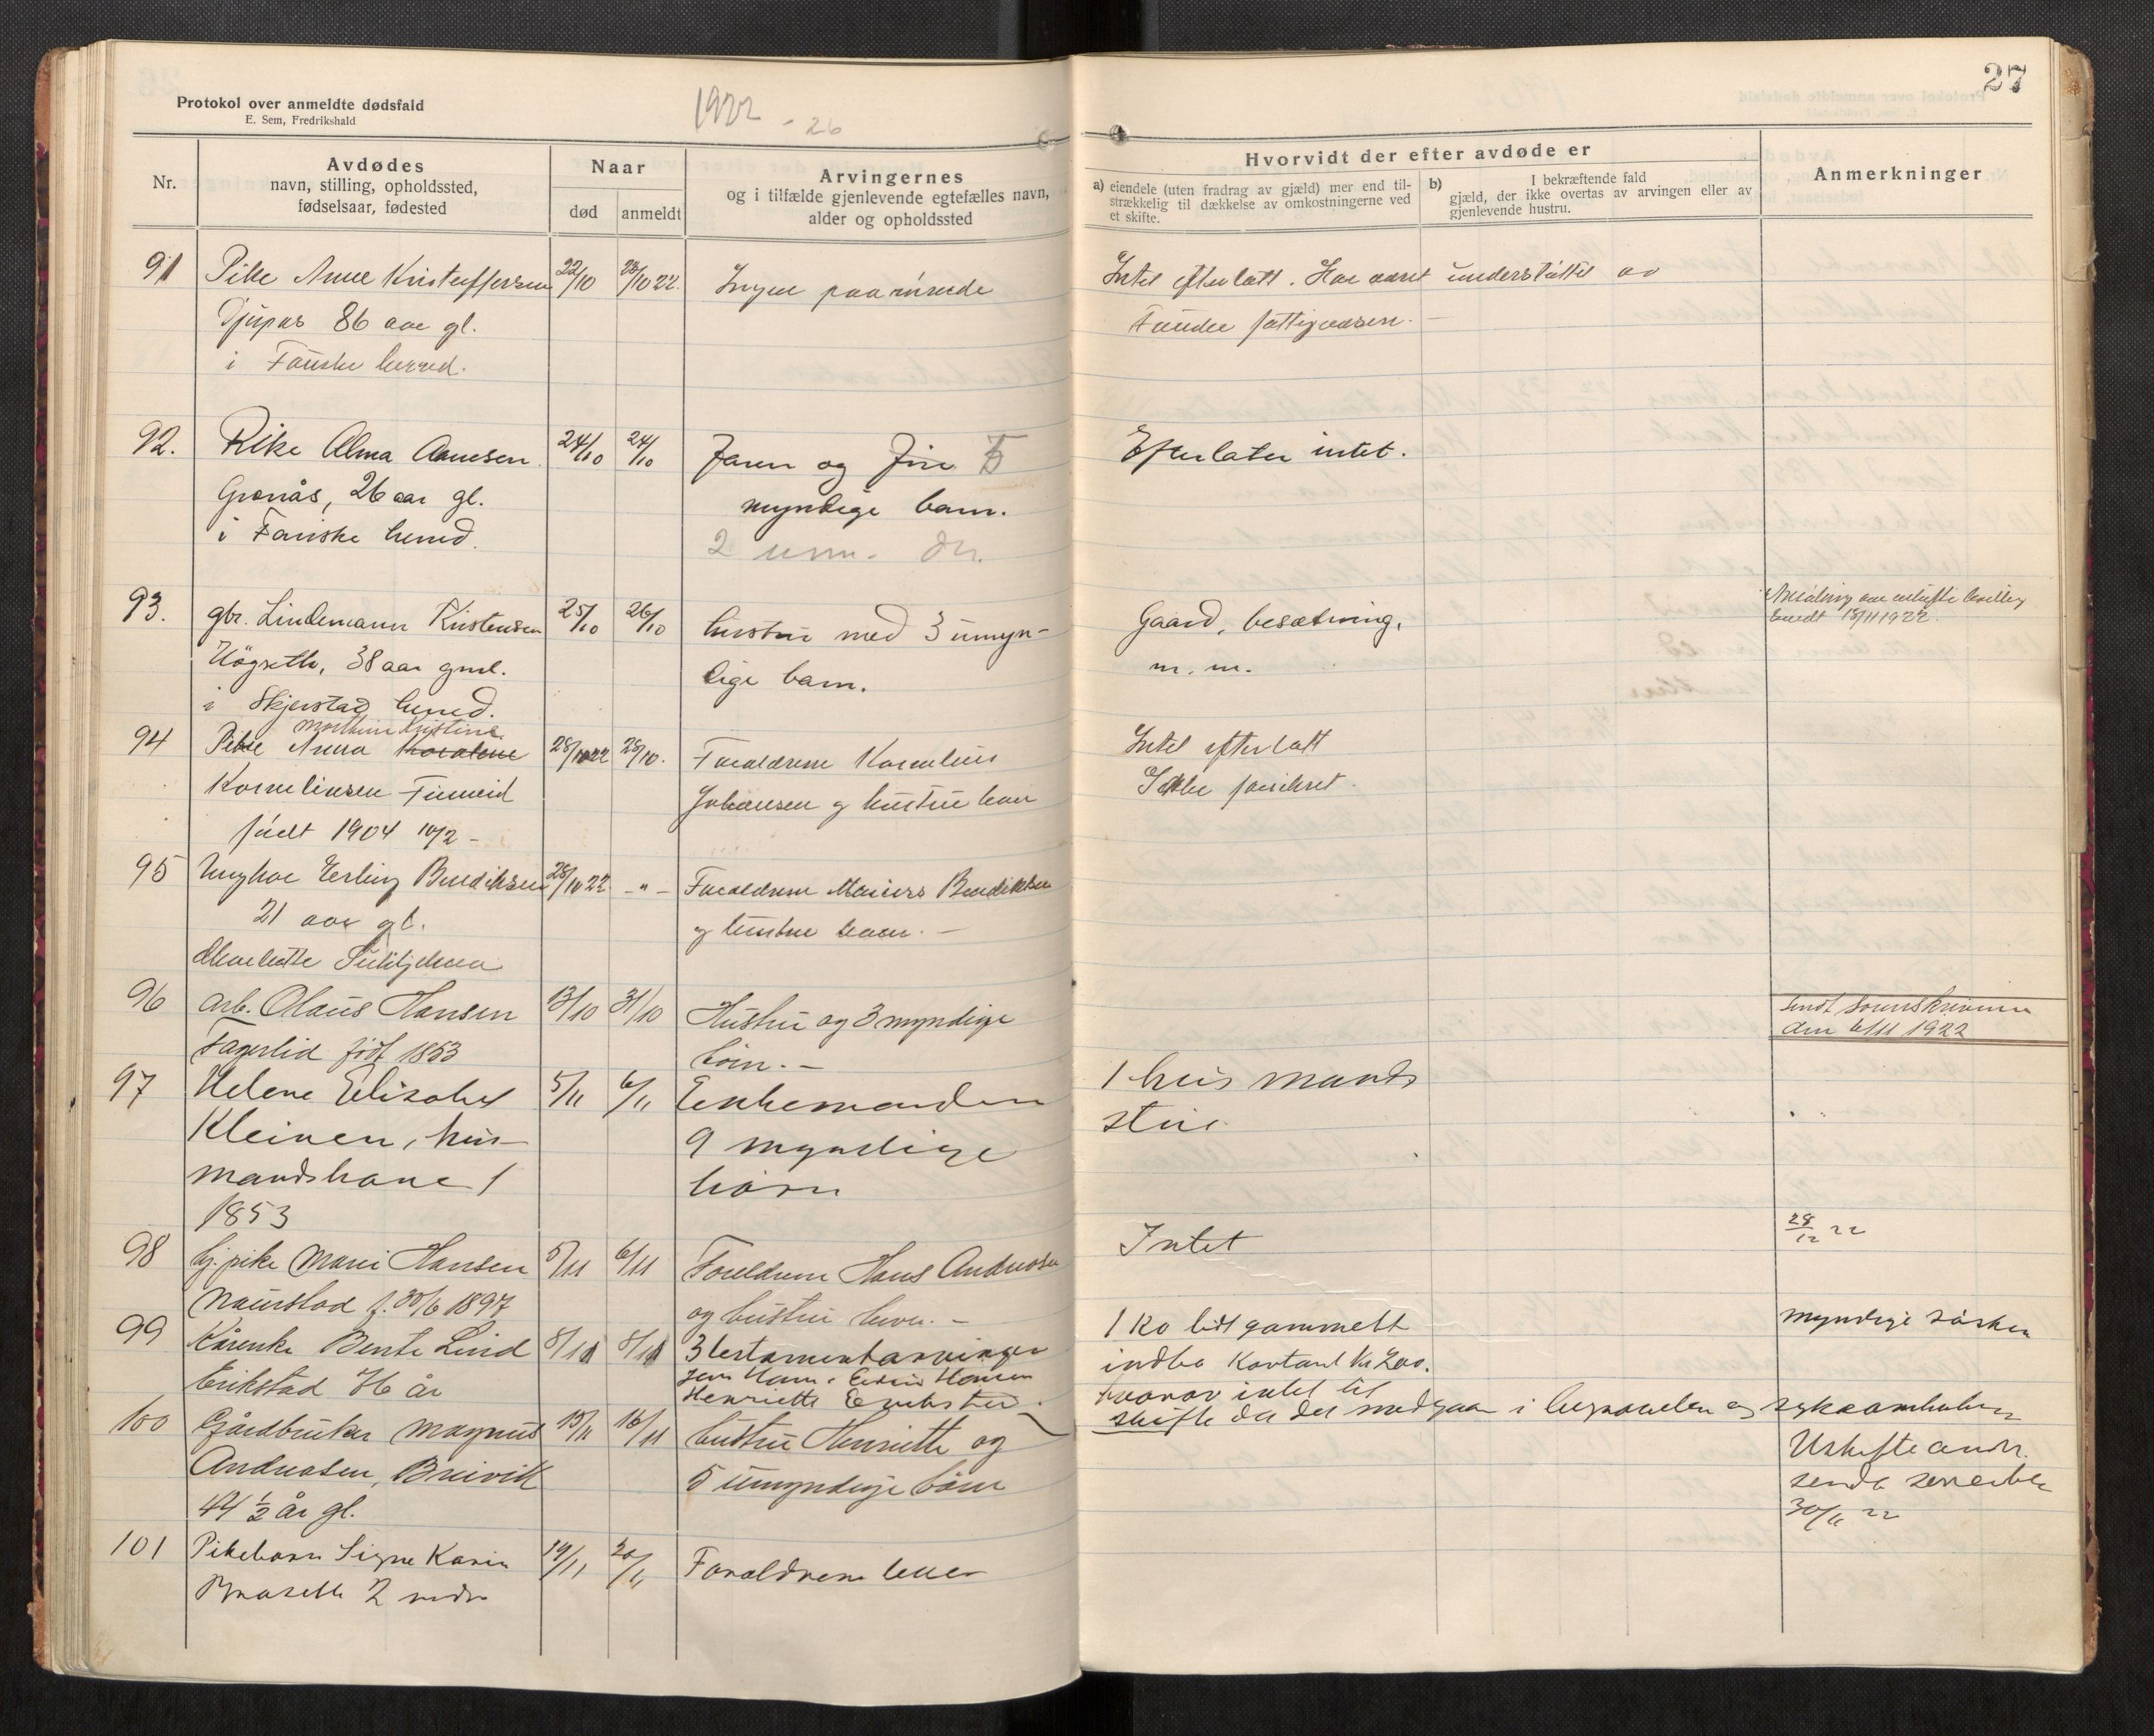 27
Protokol over anmeldte dødsfald
E. Sem, Fredrikshald
1922 - 26
Nr.
Avdødes
navn, stilling, opholdssted,
fødselsaar, fødested
Naar
død
anmeldt
Arvingernes
og i tilfælde gjenlevende egtefælles navn,
alder og opholdssted
Hvorvidt der efter avdøde er
a) eiendele (uten fradrag av gjæld) mer end til-
strækkelig til dækkelse av omkostningerne ved
et skifte.
b) I bekræftende fald
gjæld, der ikke overtas av arvingen eller av
gjenlevende hustru.
Anmerkninger
91 Pike Anne Kristoffersen 22/10 23/10 22. Ingen
Djupas 86 aar gl.
i Fauske herred.
Intet efterlatt. Har været understøttet av
Fauske fattigvæsen.
92. Pike Alma Arnesen 24/10 24/10 Faren og 5
Grønås, 26 aar gl. myndige barn.
i Fauske herred. 2
Efterlater intet.
93. gbr. Lindemann Kristensen 25/10 26/10 hustru med 3 umyn-
Høgseth, 38 aar gml. dige barn.
i Skjerstad herred.
Gaard, besætning,
m. m.
sendt 15/11 1922.
Kristine
94 Pike Anna 28/10 22 28/10. Forældrene Kornelius
Korneliusen Finneid Johansen og hustru lever
født 1904 10/2 -
Intet efterlatt
Ikke forsikret.
95 Ungkar Erling Bendiksen 28/10 22 - " - Forældrene Bendiksen
21 aar gl. og hustru lever. -
Sulitjelma
96 arb. Olaus Hansen 13/10 31/10 Hustru og 3 myndige
Fagerlid født 1853 børn. -
sendt sorenskriveren
den 6/11 1922
97 Helene Elisabet 5/11 6/11 Enkemanden
Kleiven, hus- 9 myndige
mandskone f børn
1853
1 husmands
stue
98 tj. pike Marie Hansen 5/11 6/11 Foreldrene Hans Andreasen
Naurstad f. 30/6 1897 og hustru lever. -
Intet
28/12 22
99 Bente Lind 8/11 8/11 3 testamentarvinger
Erikstad 76 år Hansen
Henriette Erikstad.
1 ko lidt gammelt
indbo Kontant Kr 200.
hvorav intet til
skifte da det medgaar i begravelsen og
myndige
100 Gårdbruker Magnus 15/11 16/11 hustru Henriette og
Andreasen, Breivik 5 umyndige børn
44 1/2 år gl.
Uskifte
sendt
30/11 22
101 Pikebarn Signe Karin 19/11 20/11 Forældrene lever
2 mdr